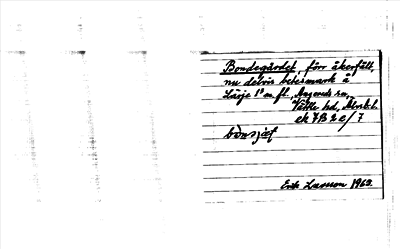 Bondegärdet, förr åkerfält,
nu delvis betesmark å
Lärje 1⁰ m.fl., Angereds sn,
Vättle hd, Älvsb.l.
ek 7B 2e/7
Erik Larsson 1963.